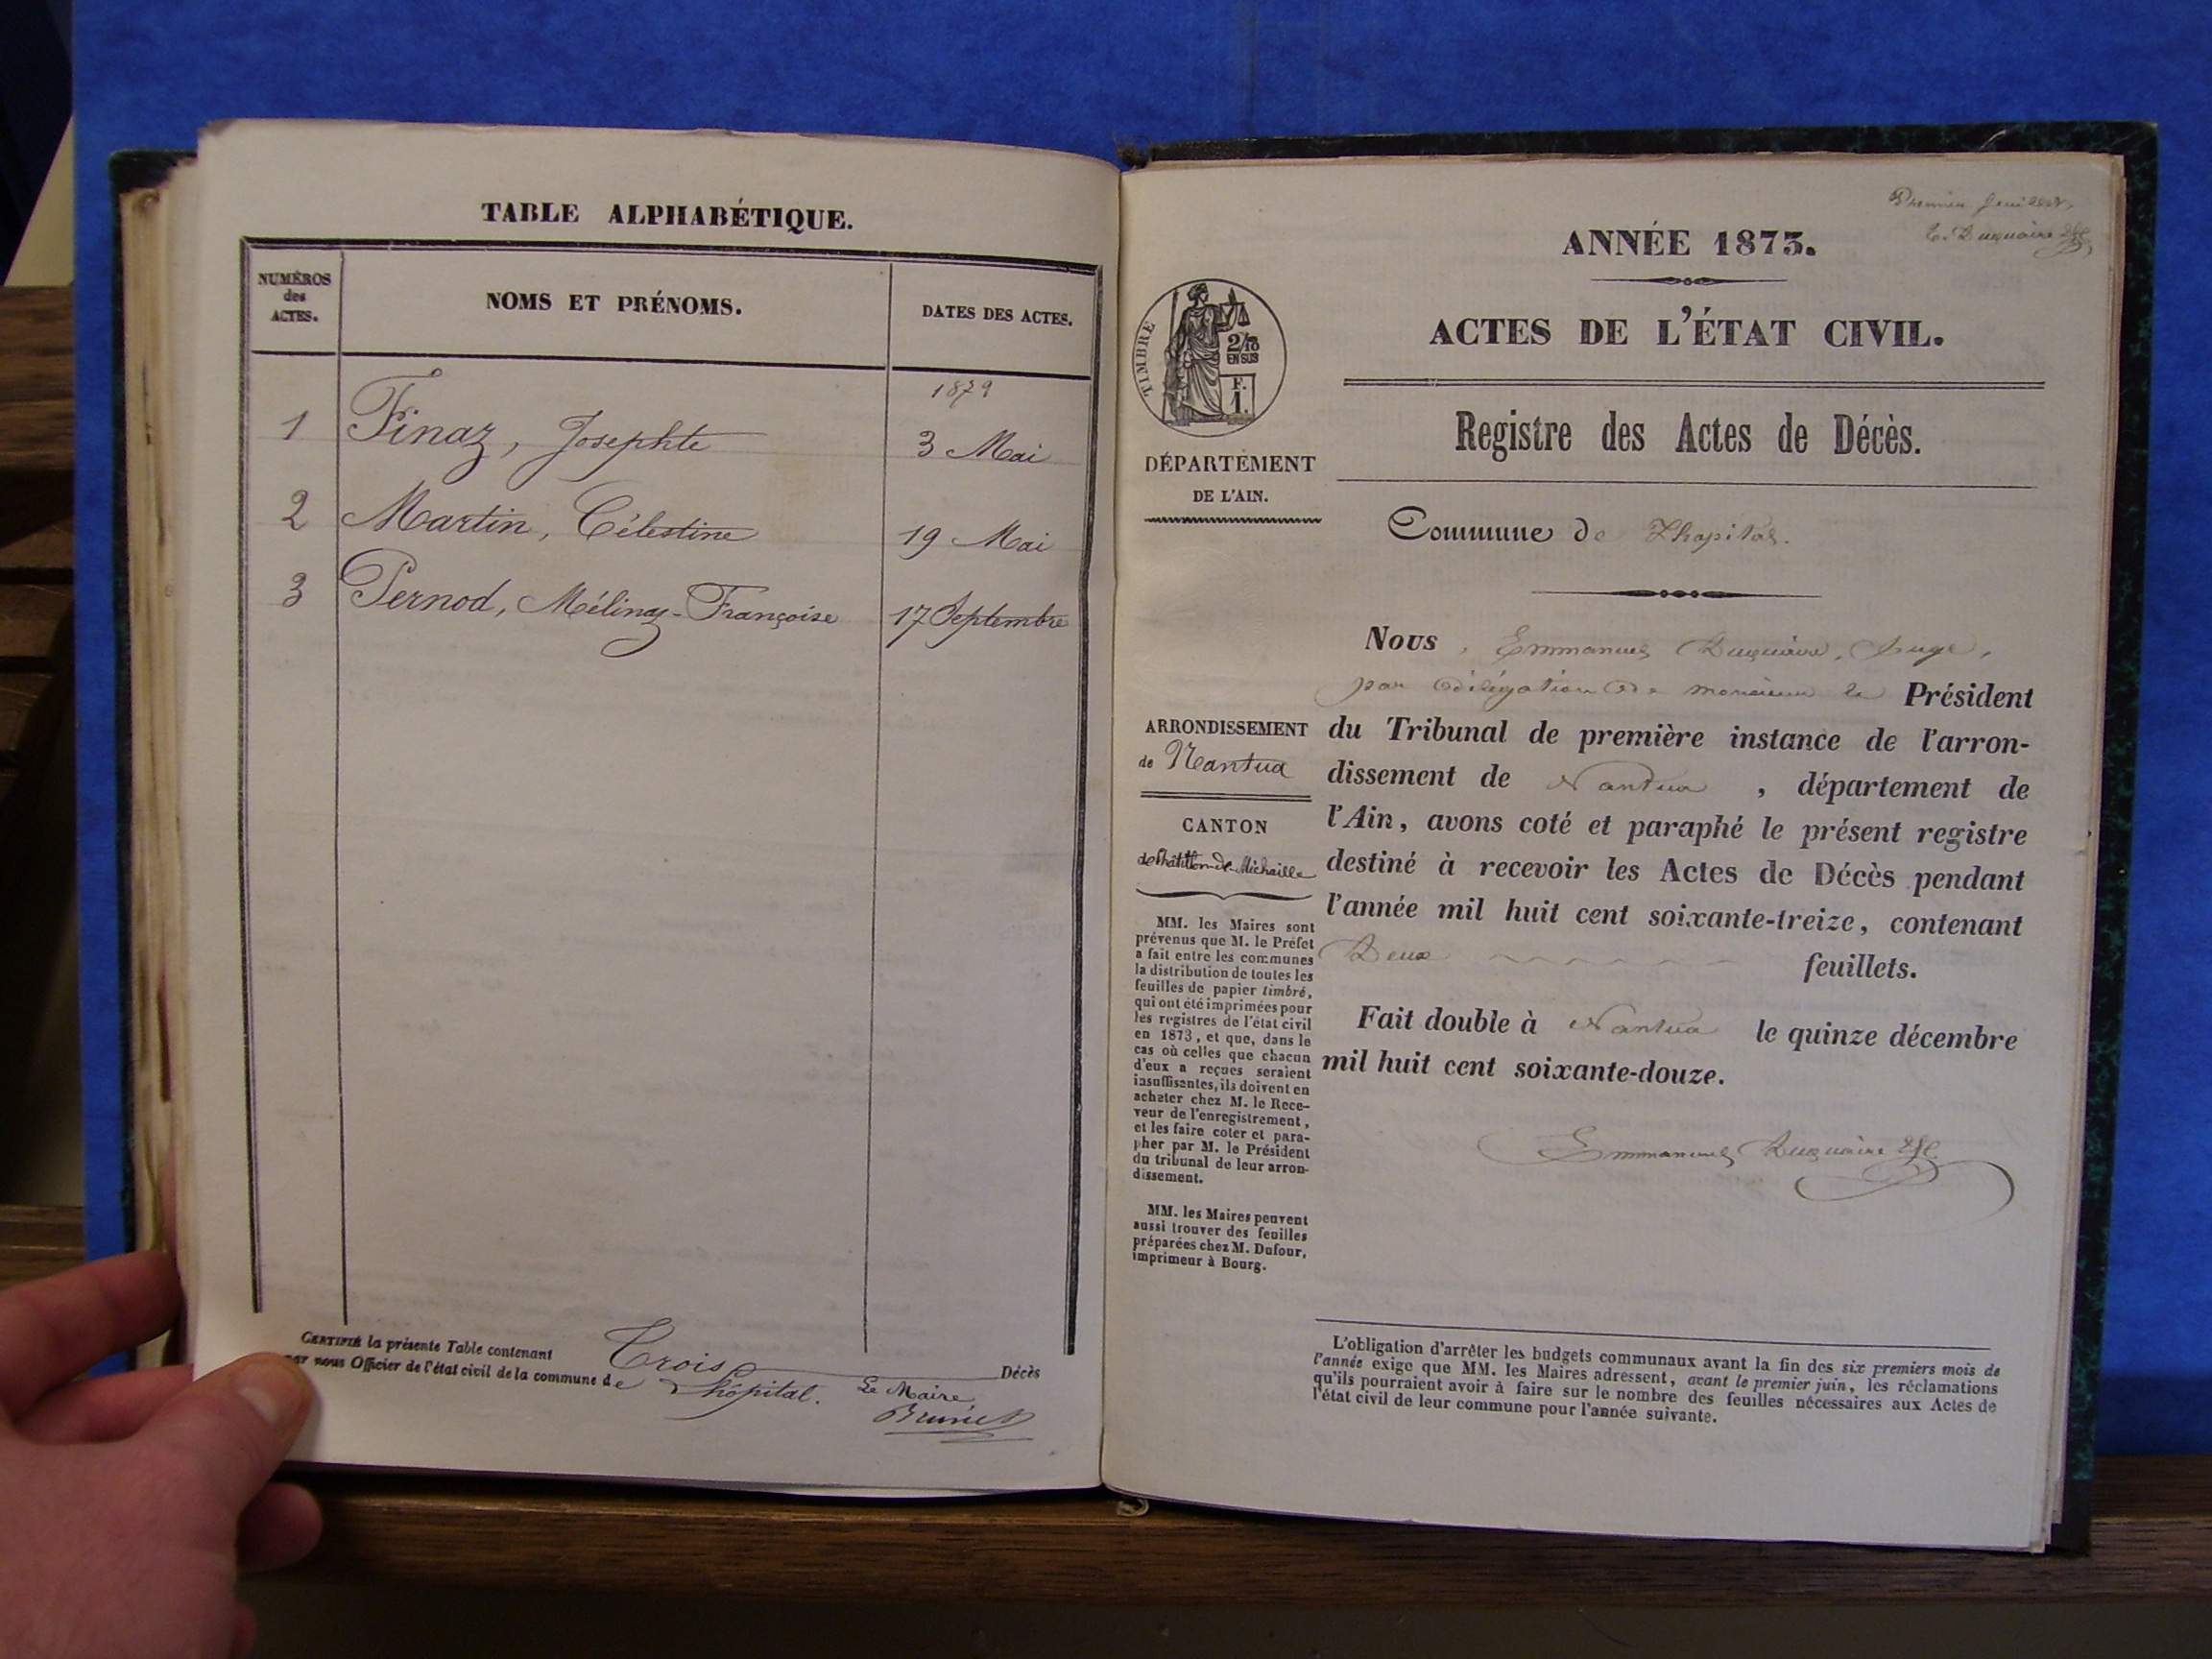 TABLE ALPHABÉTIQUE.
NUMÉROS
des
ACTES.
NOMS ET PRÉNOMS.
DATES DES ACTES.
1879
1 Finaz, Josephte 3 Mai
2 Martin, Célestine 19 Mai
3 Pernod, Mélinaz-Françoise 17 Septembre
CERTIFIÉ la présente Table contenant Trois Décès
par nous Officier de l'état civil de la commune de Lhôpital.
Le Maire
Brunet
Premier feuillet,
E. Duquaire
ANNÉE 1873.
ACTES DE L'ÉTAT CIVIL.
Registre des Actes de Décès.
Commune de Lhopital.
TIMBRE
2/10
EN SUS
F.
1.
DÉPARTEMENT
DE L'AIN.
ARRONDISSEMENT
de Nantua
CANTON
de Châtillon-de-Michaille
MM. les Maires sont
prévenus que M. le Préfet
a fait entre les communes
la distribution de toutes les
feuilles de papier timbré,
qui ont été imprimées pour
les registres de l'état civil
en 1873, et que, dans le
cas où celles que chacun
d'eux a reçues seraient
insuffisantes, ils doivent en
acheter chez M. le Rece-
veur de l'enregistrement,
et les faire coter et para-
pher par M. le Président
du tribunal de leur arron-
dissement.
MM. les Maires peuvent
aussi trouver des feuilles
préparées chez M. Dufour,
imprimeur à Bourg.
Nous, Emmanuel Duquaire, Juge,
par délégation de monsieur le Président
du Tribunal de première instance de l'arron-
dissement de Nantua, département de
l'Ain, avons coté et paraphé le présent registre
destiné à recevoir les Actes de Décès pendant
l'année mil huit cent soixante-treize, contenant
Deux feuillets.
Fait double à Nantua le quinze décembre
mil huit cent soixante-douze.
Emmanuel Duquaire
L'obligation d'arrêter les budgets communaux avant la fin des six premiers mois de
l'année exige que MM. les Maires adressent, avant le premier juin, les réclamations
qu'ils pourraient avoir à faire sur le nombre des feuilles nécessaires aux Actes de
l'état civil de leur commune pour l'année suivante.